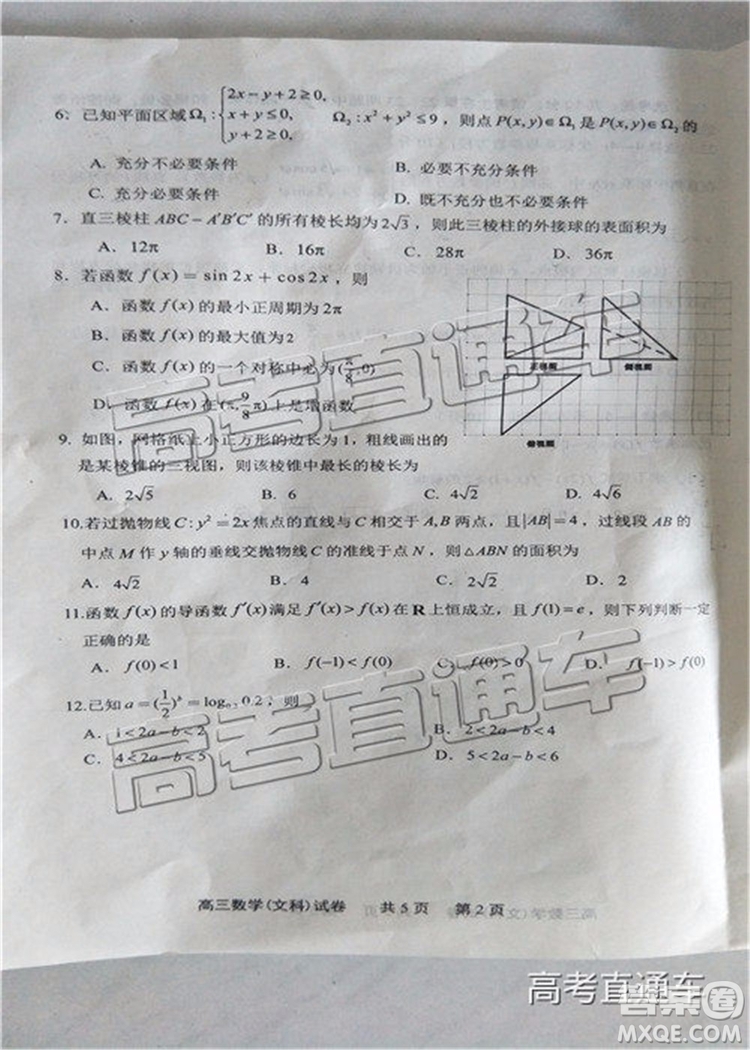 2x-y+2≥0,
6. 已知平面区域 Ω₁:{x+y≤0, Ω₂:x²+y²≤9，则点 P(x,y)∈Ω₁ 是 P(x,y)∈Ω₂ 的
y+2≥0,
A. 充分不必要条件 B. 必要不充分条件
C. 充分必要条件 D. 既不充分也不必要条件
7. 直三棱柱 ABC-A'B'C' 的所有棱长均为2√3，则此三棱柱的外接球的表面积为
A. 12π B. 16π C. 28π D. 36π
8. 若函数 f(x)=sin2x+cos2x，则
A. 函数 f(x) 的最小正周期为2π
B. 函数 f(x) 的最大值为2
C. 函数 f(x) 的一个对称中心为(π/8,0)
D. 函数 f(x) 在(π,9/8π)上是增函数
正视图 侧视图
俯视图
9. 如图，网格纸上小正方形的边长为1，粗线画出的
是某棱锥的三视图，则该棱锥中最长的棱长为
A. 2√5 B. C. 4√2 D. 4√6
10.若过抛物线 C:y²=2x 焦点的直线与 C 相交于 A,B 两点，且|AB|=4，过线段 AB 的
中点 M 作 y 轴的垂线交抛物线 C 的准线于点 N，则△ABN 的面积为
A. 4√2 B. 4 C. 2√2 D. 2
11.函数 f(x) 的导函数 f'(x)满足 f'(x)>f(x)在 R 上恒成立，且 f(1)=e，则下列判断一定
正确的是
A. f(0)<1 B. f(-1)<f(0) C. f(0)>0 D. f(-1)>f(0)
12.已知 a=(1/2)ᵇ=log 0.2，则
A. 1<2a-b<2 B. 2<2a-b<4
C. 4<2a-b<5 D. 5<2a-b<6
高三数学(文科)试卷 共5页 第2页
高考直通车
高考直通车
高考直通车
答案圈
MXQE.COM